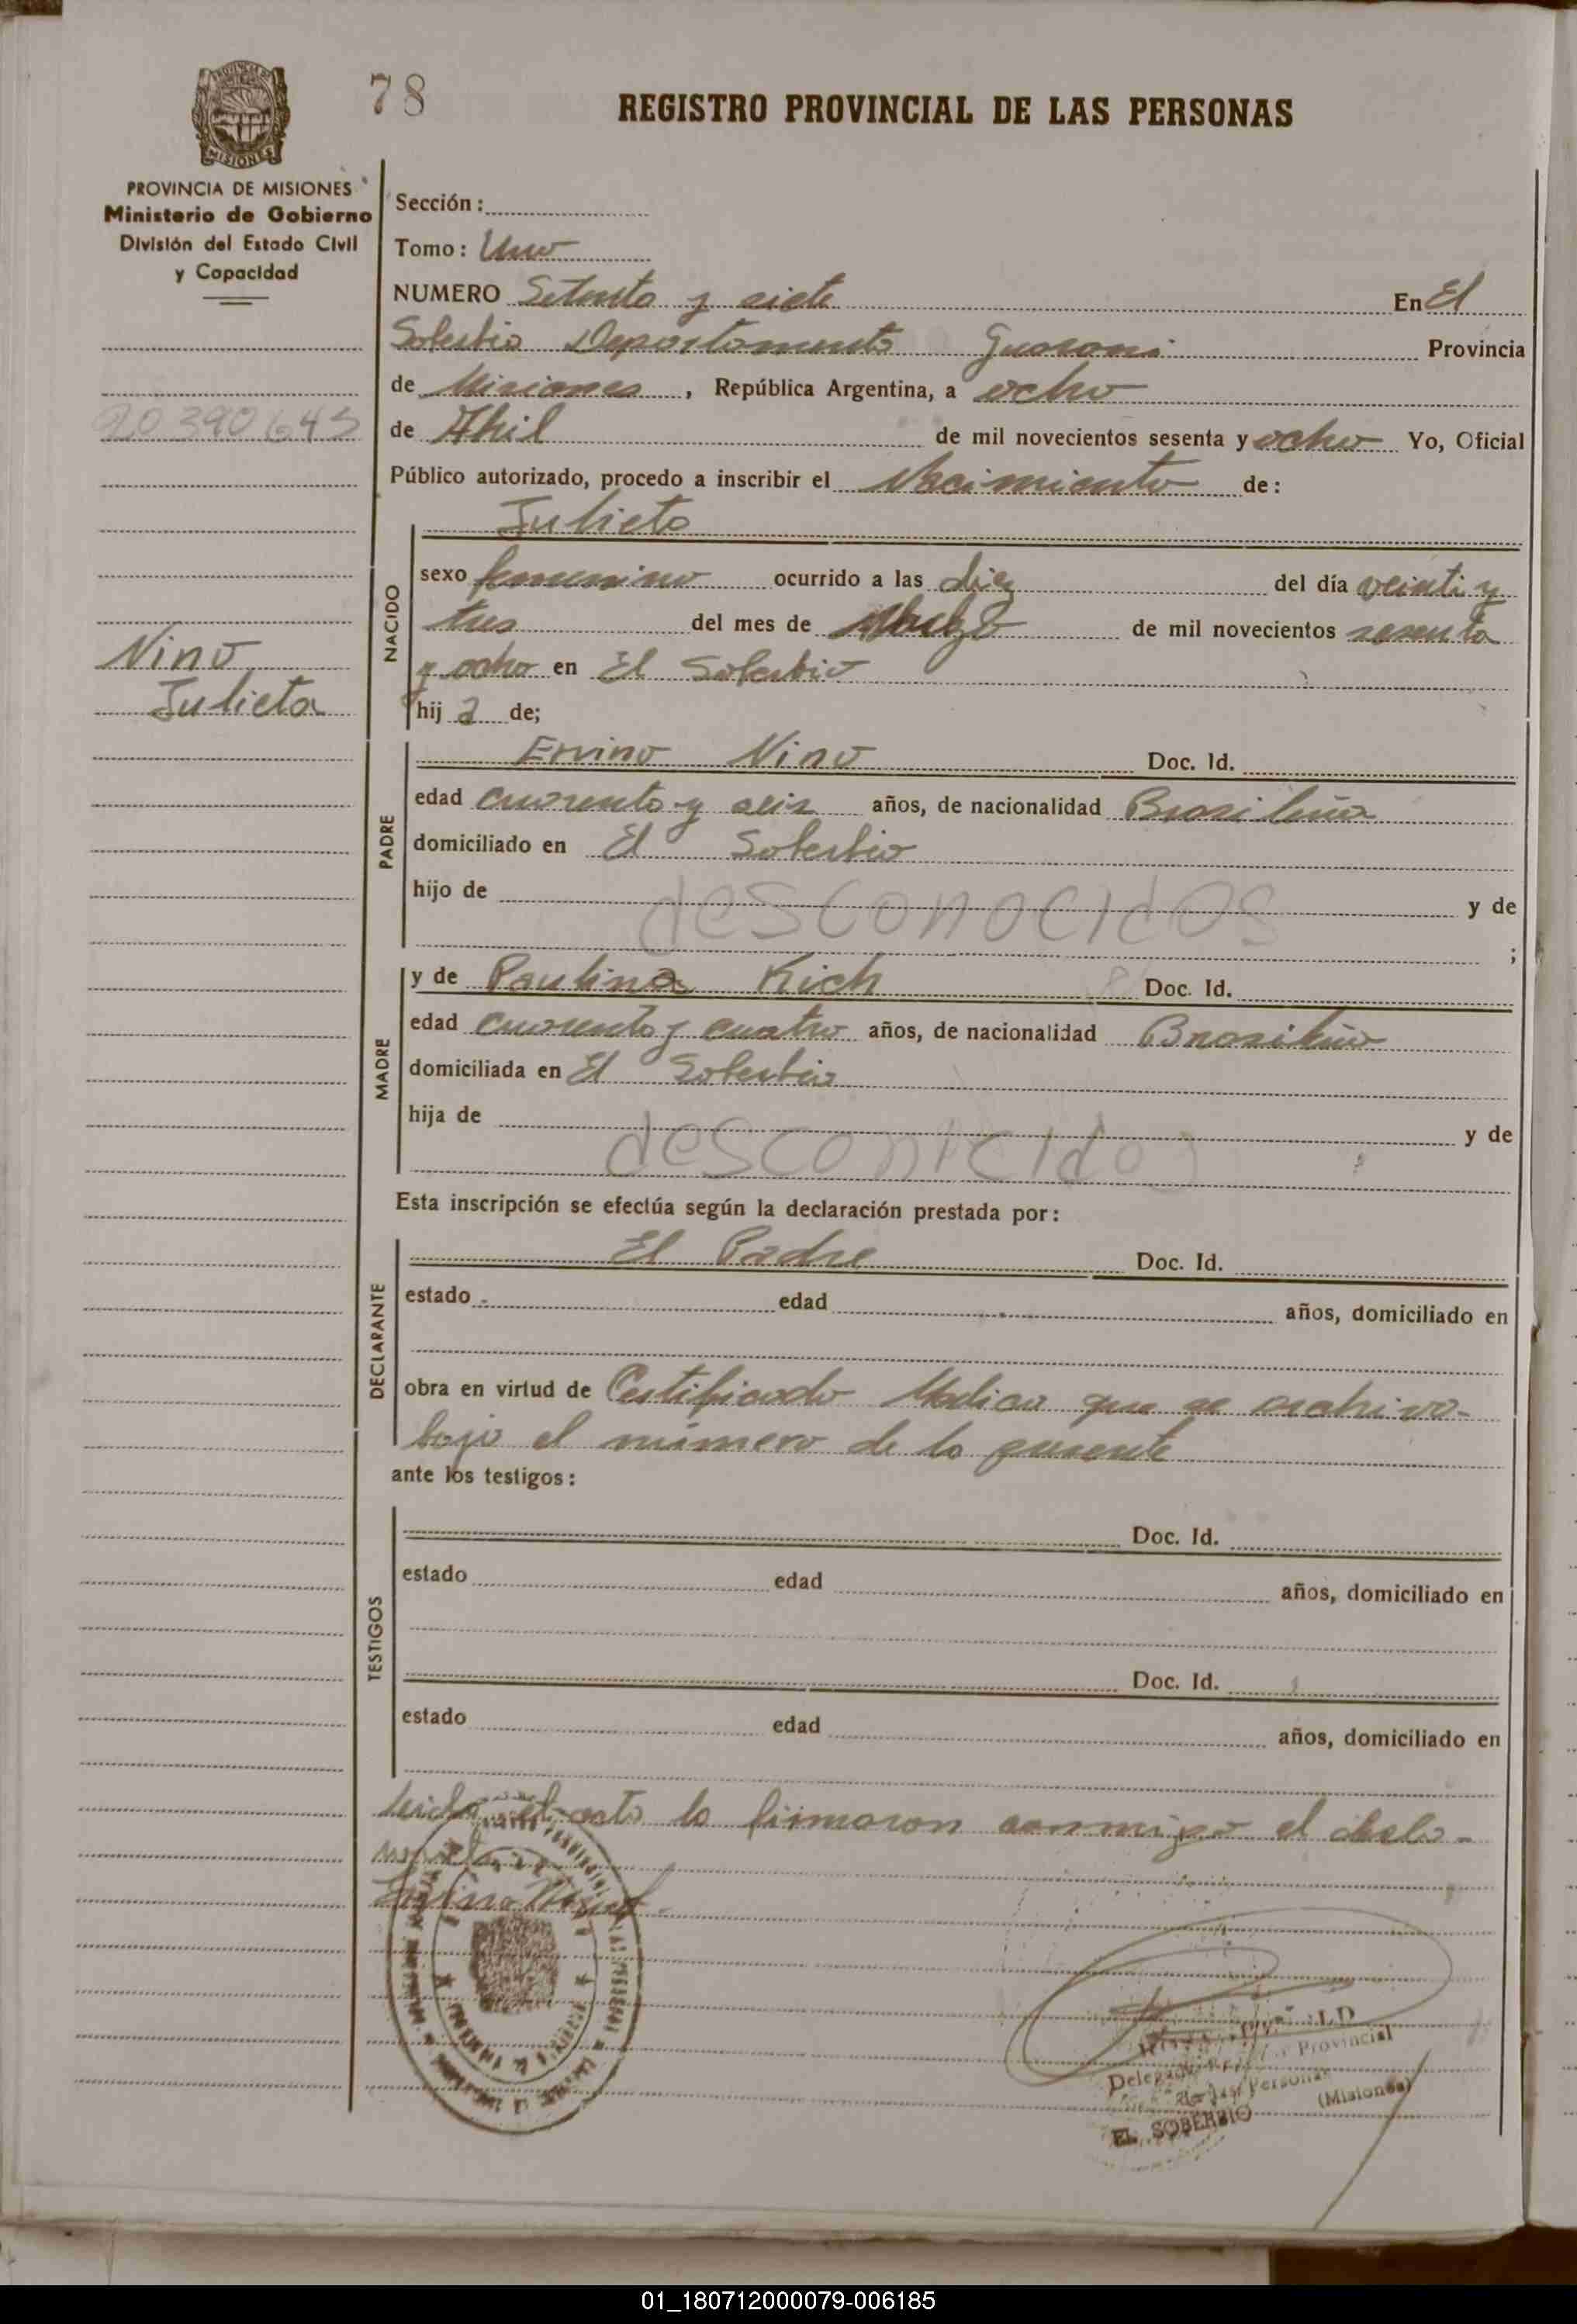 78
REGISTRO PROVINCIAL DE LAS PERSONAS
PROVINCIA DE MISIONES
Ministerio de Gobierno
División del Estado Civil
y Capacidad
MISIONES
Sección:
Tomo: Uno
NUMERO Setenta y siete En El
Soberbio Departamento Guarani Provincia
de Misiones, República Argentina, a ocho
20390643
de Abril de mil novecientos sesenta y ocho Yo, Oficial
Público autorizado, procedo a inscribir el Nacimiento de:
Julieta
NACIDO
sexo femenino ocurrido a las diez del día veinti y
tres del mes de Marzo de mil novecientos sesenta
y ocho en El Soberbio
hija de;
Nino
Julieta
PADRE
Ervino Nino Doc. Id.
edad cuarenta y seis años, de nacionalidad Brasileña
domiciliado en El Soberbio
hijo de desconocidos y de
;
MADRE
y de Paulina Rich Doc. Id.
edad cuarenta y cuatro años, de nacionalidad Brasileña
domiciliada en El Soberbio
hija de desconicidos y de
Esta inscripción se efectúa según la declaración prestada por:
DECLARANTE
El Padre Doc. Id.
estado edad años, domiciliado en
obra en virtud de Certificado Medico que se archiva
bajo el número de la presente
ante los testigos:
TESTIGOS
Doc. Id.
estado edad años, domiciliado en
Doc. Id.
estado edad años, domiciliado en
Leida el acta la firmaron conmigo el decla-
Delegado Provincial
de las Personas
EL SOBERBIO (Misiones)
01_180712000079-006185